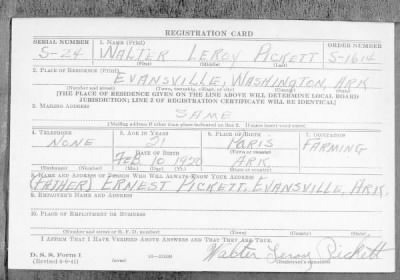 REGISTRATION CARD
SERIAL NUMBER 1. Name (Print) ORDER NUMBER
S-24 WALTER LEROY PICKETT S-1614
(First) (Middle) (Last)
2. Place of Residence (Print)
EVANSVILLE, WASHINGTON, ARK
(Number and street) (Town, township, village, or city) (County) (State)
[THE PLACE OF RESIDENCE GIVEN ON THE LINE ABOVE WILL DETERMINE LOCAL BOARD
JURISDICTION; LINE 2 OF REGISTRATION CERTIFICATE WILL BE IDENTICAL]
3. Mailing Address
SAME
[Mailing address if other than place indicated on line 2. If same insert word same]
4. Telephone 5. Age in Years 6. Place of Birth 7. Occupation
NONE 21 PARIS FARMING
Date of Birth (Town or county)
FEB 10 1920 ARK
(Exchange) (Number) (Mo.) (Day) (Yr.) (State or country)
8. Name and Address of Person Who Will Always Know Your Address
(FATHER) ERNEST PICKETT, EVANSVILLE, ARK.
9. Employer's Name and Address
10. Place of Employment or Business
(Number and street or R. F. D. number) (Town) (County) (State)
I Affirm That I Have Verified Above Answers and That They Are True.
D. S. S. Form 1 Walter Leroy Pickett
(Revised 6-9-41) (over) (Registrant's signature)